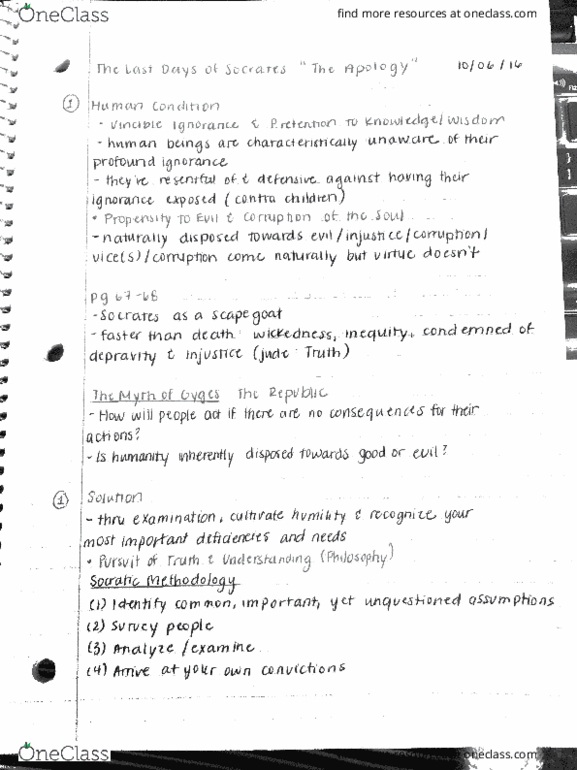 OneClass
find more resources at oneclass.com
The Last Days of Socrates "The Apology" 10/06/16
① Human Condition
- Vincible Ignorance & Pretention to Knowledge/Wisdom
- human beings are characteristically unaware of their
profound ignorance
- they're resentful of & defensive against having their
ignorance exposed (contra children)
• Propensity to Evil & Corruption of the Soul
- naturally disposed towards evil/injustice/corruption/
vice(s)/corruption come naturally but virtue doesn't
pg 67-68
- Socrates as a scapegoat
- faster than death: wickedness, inequity, condemned of
depravity & injustice (jude: Truth)
The Myth of Gyges The Republic
- How will people act if there are no consequences for their
actions?
- Is humanity inherently disposed towards good or evil?
① Solution
- thru examination, cultivate humility & recognize your
most important deficiencies and needs
• Pursuit of Truth & Understanding (Philosophy)
Socratic Methodology
(1) Identify common, important, yet unquestioned assumptions
(2) Survey people
(3) Analyze/examine
(4) Arrive at your own convictions
OneClass
find more resources at oneclass.com